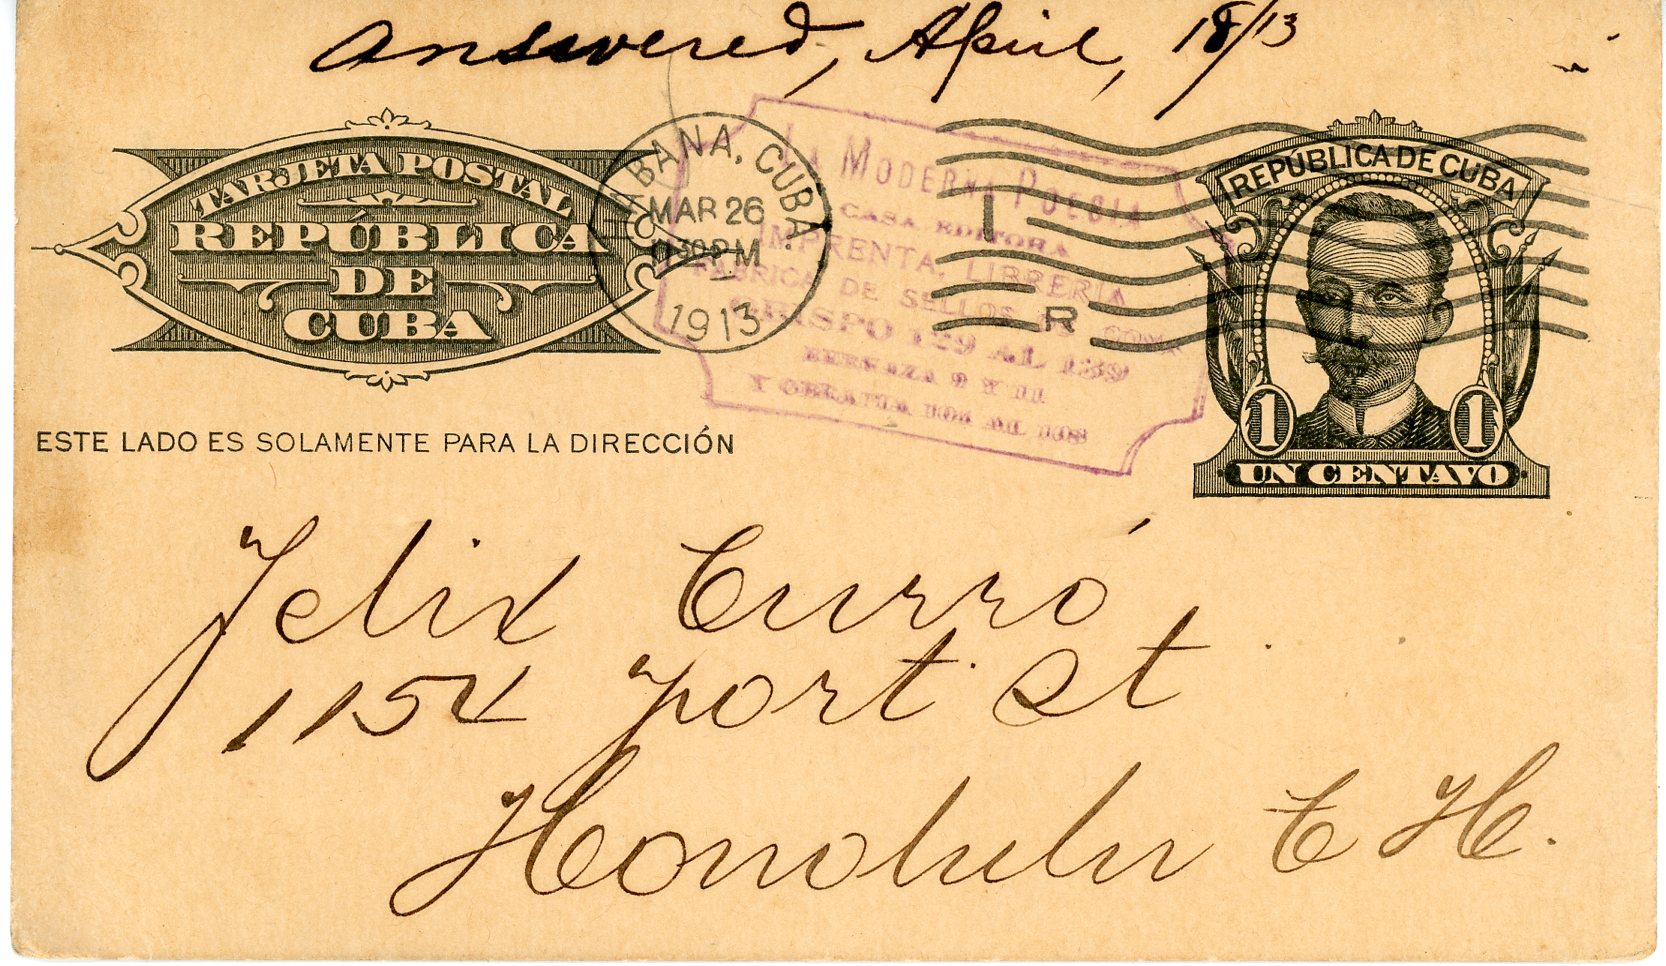 answered, April, 18/13
TARJETA POSTAL
REPÚBLICA
DE
CUBA
HABANA, CUBA.
MAR 26
11 30 PM
1913
LA MODERNA POESIA
CASA EDITORA
IMPRENTA, LIBRERIA
FABRICA DE SELLOS
OBISPO 129 AL 139
BERNAZA 9 Y 11
1
R
REPÚBLICA DE CUBA
1 1
UN CENTAVO
ESTE LADO ES SOLAMENTE PARA LA DIRECCIÓN
Felix Curró,
1154 Fort St
Honolulu T H.